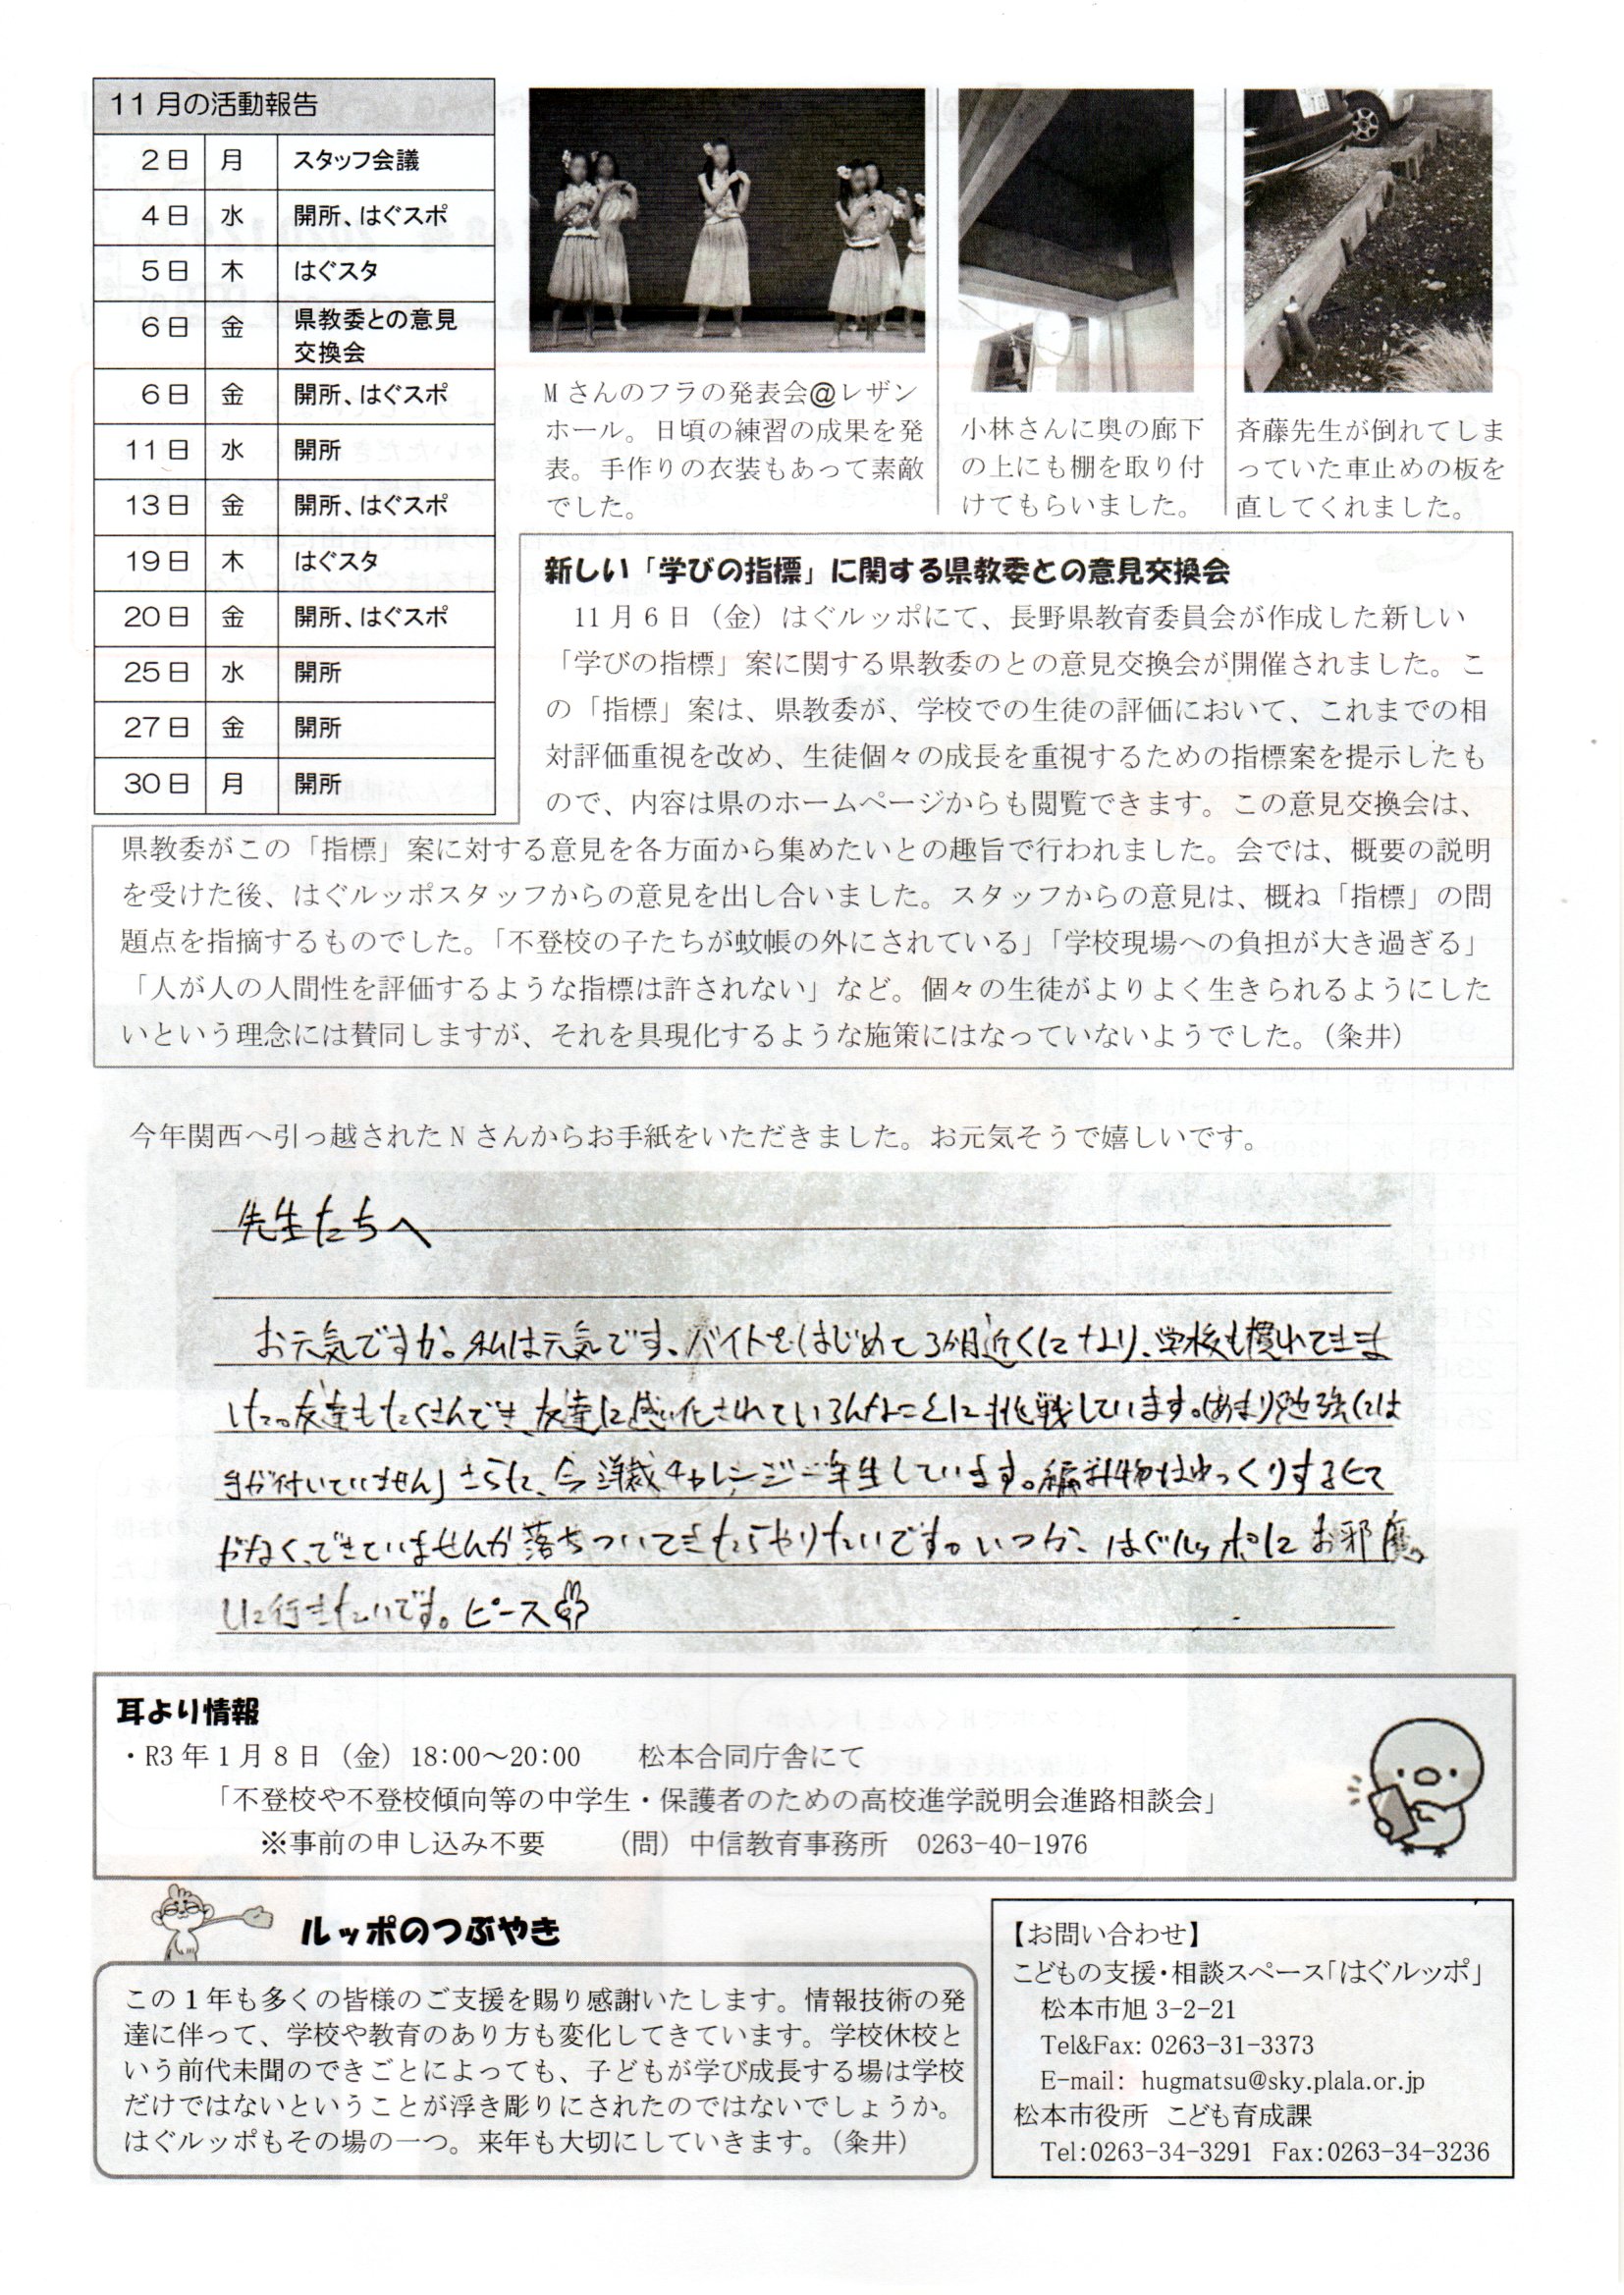 11月の活動報告
2日 月 スタッフ会議
4日 水 開所、はぐスポ
5日 木 はぐスタ
6日 金 県教委との意見
交換会
6日 金 開所、はぐスポ
11日 水 開所
13日 金 開所、はぐスポ
19日 木 はぐスタ
20日 金 開所、はぐスポ
25日 水 開所
27日 金 開所
30日 月 開所
Mさんのフラの発表会@レザン
ホール。日頃の練習の成果を発
表。手作りの衣装もあって素敵
でした。
小林さんに奥の廊下
の上にも棚を取り付
けてもらいました。
斉藤先生が倒れてしま
っていた車止めの板を
直してくれました。
新しい「学びの指標」に関する県教委との意見交換会
11月6日（金）はぐルッポにて、長野県教育委員会が作成した新しい
「学びの指標」案に関する県教委のとの意見交換会が開催されました。こ
の「指標」案は、県教委が、学校での生徒の評価において、これまでの相
対評価重視を改め、生徒個々の成長を重視するための指標案を提示したも
ので、内容は県のホームページからも閲覧できます。この意見交換会は、
県教委がこの「指標」案に対する意見を各方面から集めたいとの趣旨で行われました。会では、概要の説明
を受けた後、はぐルッポスタッフからの意見を出し合いました。スタッフからの意見は、概ね「指標」の問
題点を指摘するものでした。「不登校の子たちが蚊帳の外にされている」「学校現場への負担が大き過ぎる」
「人が人の人間性を評価するような指標は許されない」など。個々の生徒がよりよく生きられるようにした
いという理念には賛同しますが、それを具現化するような施策にはなっていないようでした。（粂井）
今年関西へ引っ越されたNさんからお手紙をいただきました。お元気そうで嬉しいです。
先生たちへ
お元気ですか。私は元気です、バイトをはじめて3か月近くになり、学校も慣れてきま
した。友達もたくさんでき、友達に感化されていろんなことに挑戦しています。(あまり勉強には
手が付いていません」さらに、今洋裁チャレンジ一年生しています。編み物はゆっくりする
なく、できていませんが落ちついてきたらやりたいです。いつか、はぐルッポにお邪魔
しに行きたいです。ピース
耳より情報
・R3年1月8日（金）18:00～20:00 松本合同庁舎にて
「不登校や不登校傾向等の中学生・保護者のための高校進学説明会進路相談会」
※事前の申し込み不要 （問）中信教育事務所 0263-40-1976
ルッポのつぶやき
この1年も多くの皆様のご支援を賜り感謝いたします。情報技術の発
達に伴って、学校や教育のあり方も変化してきています。学校休校と
いう前代未聞のできごとによっても、子どもが学び成長する場は学校
だけではないということが浮き彫りにされたのではないでしょうか。
はぐルッポもその場の一つ。来年も大切にしていきます。（粂井）
【お問い合わせ】
こどもの支援・相談スペース「はぐルッポ」
松本市旭 3-2-21
Tel&Fax: 0263-31-3373
E-mail: hugmatsu@sky.plala.or.jp
松本市役所 こども育成課
Tel:0263-34-3291 Fax:0263-34-3236